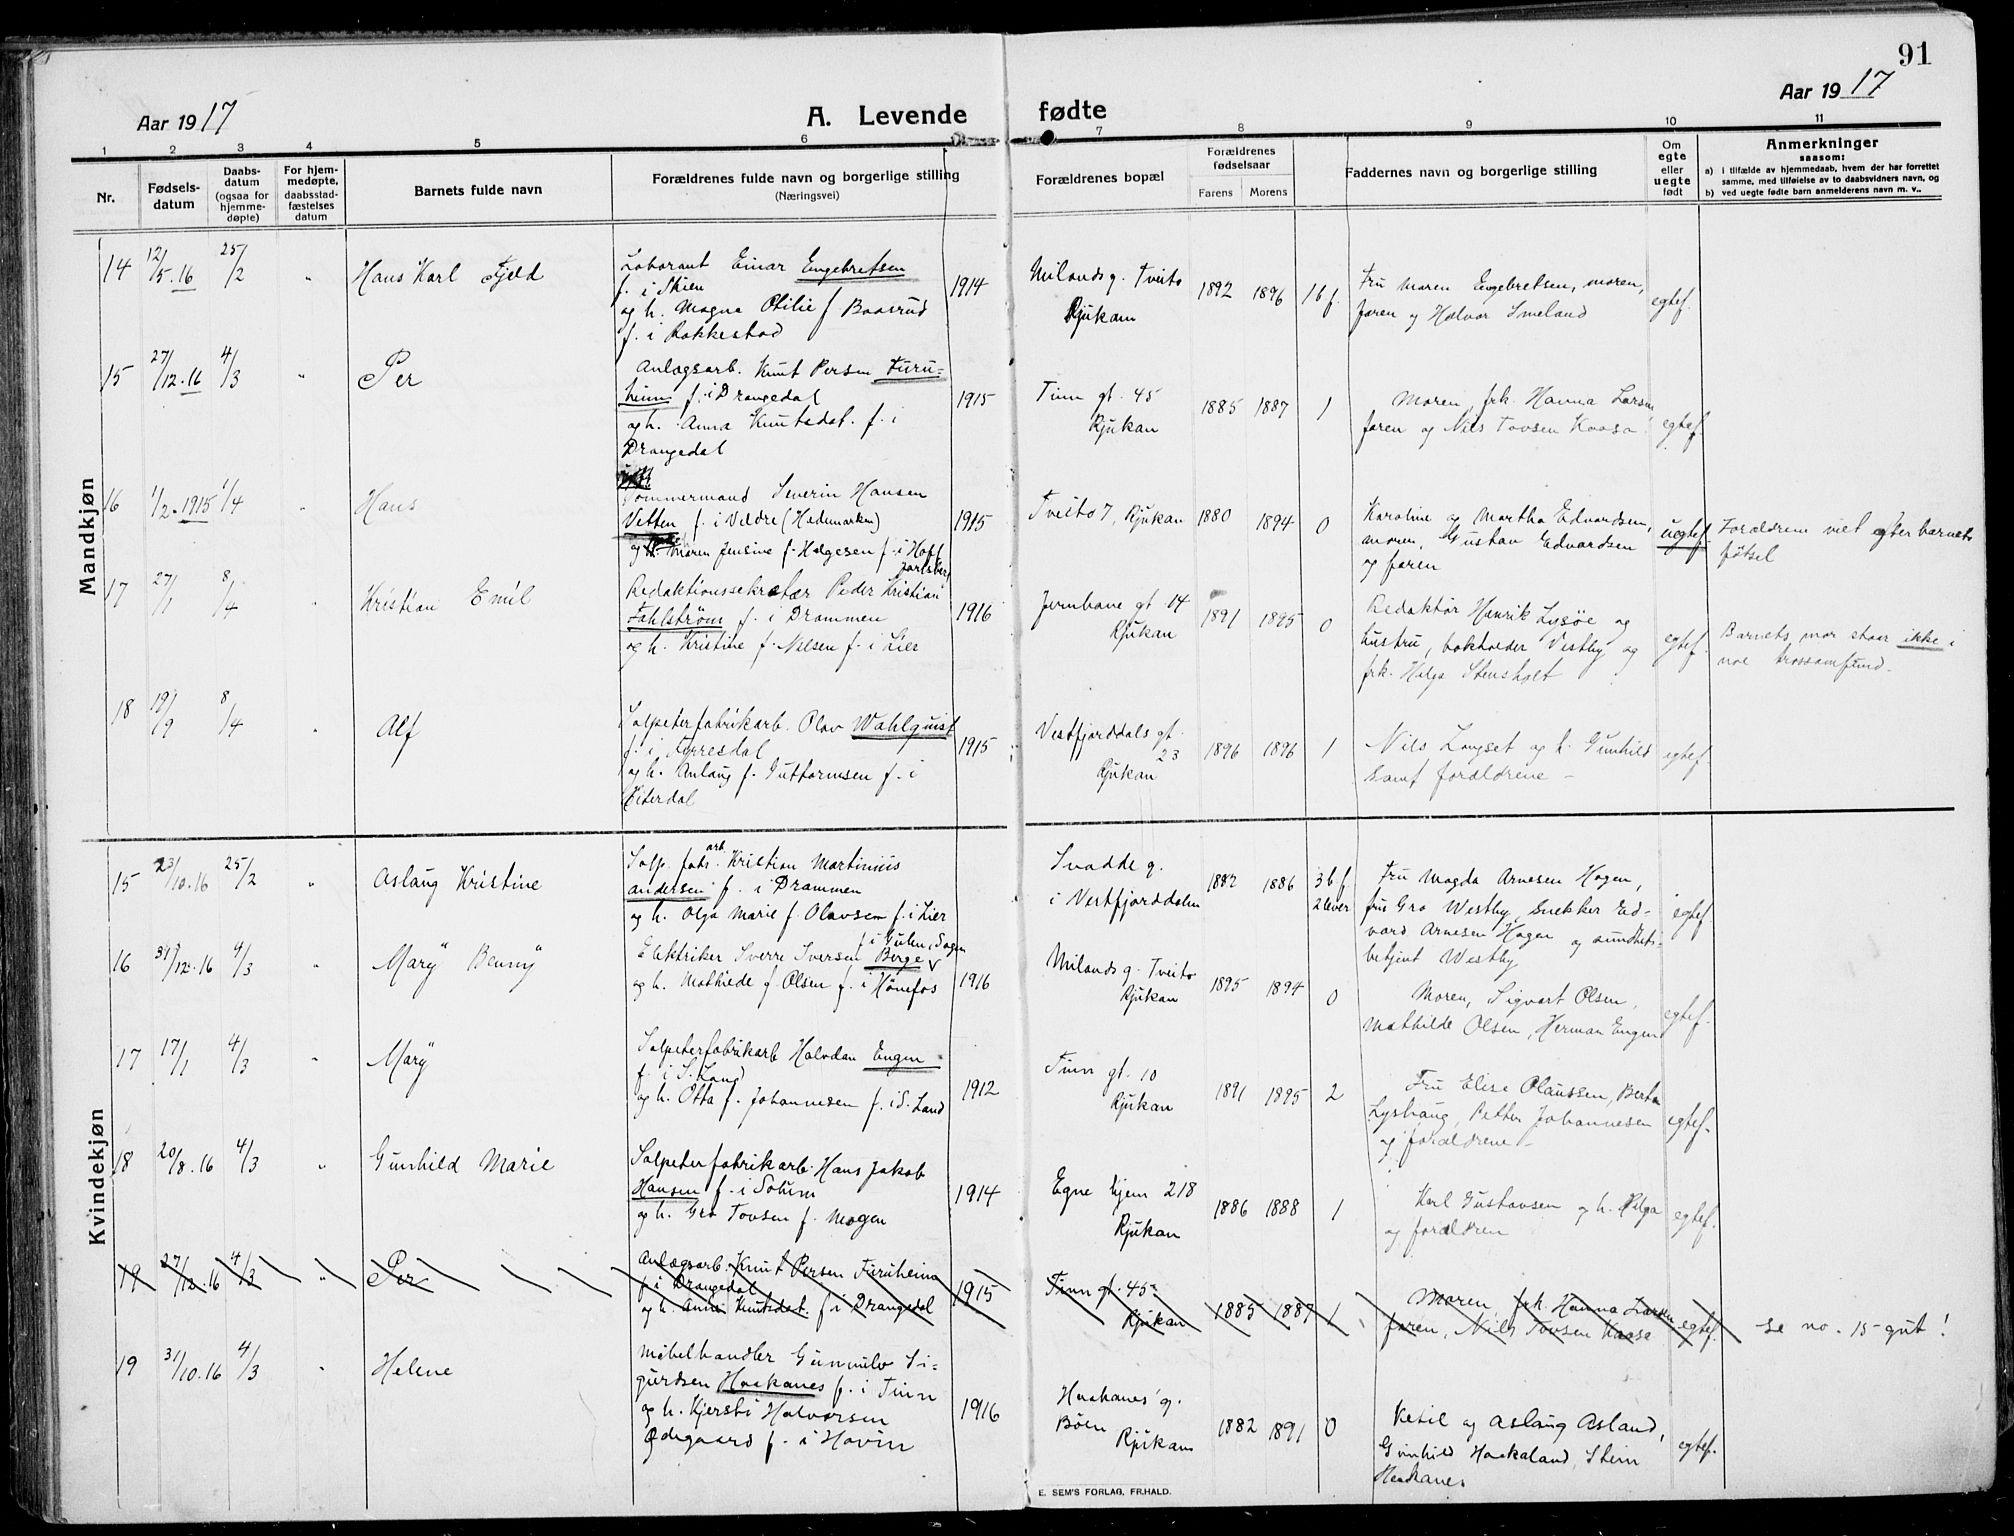 91
Aar 1917
A. Levende fødte
Aar 1917
1 2 3 4 5 6 7 8 9 10 11
Nr.
Fødsels-
datum
Daabs-
datum
(ogsaa for
hjemme-
døpte)
For hjem-
medøpte,
daabsstad-
fæstelses
datum
Barnets fulde navn
Forældrenes fulde navn og borgerlige stilling
(Næringsvei)
Forældrenes bopæl
Forældrenes
fødselsaar
Farens Morens
Faddernes navn og borgerlige stilling
Om
egte
eller
uegte
født
Anmerkninger
saasom:
a) i tilfælde av hjemmedaab, hvem der har forrettet
samme, med tilføielse av to daabsvidners navn, og
b) ved uegte fødte barn anmelderens navn m. v..
Mandkjøn
14 12/5.16 25/2 " Hans Karl Fjeld
Laborant Einar Engebretsen
f. i Skien
og h. Magna Otilie f Baasrud
f. i Rakkestad
1914
Milands g. Tveito
Rjukan
1892 1896 1 b f.
Fru Maren Engebretsen, moren,
faren og Halvor Smeland
egtef.
15 27/12.16 4/3 " Per
Anlægsarb. Knut Persen Furu-
heim f. i Drangedal
og h. Anna Knutsdat. f. i
Drangedal
1915
Tinn gt. 45
Rjukan
1885 1887 1
Moren, frk. Hanna Larsen,
faren og Nils Tovsen Kaasa
egtef.
16 1/2-1915 1/4 " Hans
Tømmermand Severin Hansen
Vetten f. i Veldre (Hedemarken)
og Maren Jensine f. Helgesen f. i Hoff
Jarlsberg
1915
Tveito 7, Rjukan
1880 1894 0
Karoline og Martha Edvardsen,
moren, Gustav Edvardsen
og faren
uegtef.
Forældrene viet efter barnets
fötsel
17 27/1 8/4 " Kristian Emil
Redaktionssekretær Peder Kristian
Fahlstrøm f. i Drammen
og h. Kristine f. Nilsen f. i Lier
1916
Jernbane gt. 14
Rjukan
1891 1895 0
Redaktør Henrik Lysöe og
hustru, bokholder Vestby og
frk. Helga Stensholt
egtef.
Barnets mor staar ikke i
noe trossamfund.
18 19/9 8/4 " Alf
Salpeterfabrikarb. Olav Wahlquist
f. i Nissedal
og h. Aslaug f. Guttormsen f. i
Hiterdal
1915
Vestfjorddals gt.
23
Rjukan
1896 1896 1
Nils Langset og h. Gunhild
samt forældrene -
egtef.
Kvindekjøn
15 23/10.16 25/2 " Aslaug Kristine
Salp. fabr. arb. Kristian Martinius
Andersen f. i Drammen
og h. Olga Marie f. Olavsen f. i Lier
Svadde g.
i Vestfjorddalen
1882 1886 3 b f.
2 lever
Fru Magda Arnesen Hagen,
fru Gro Westby, snekker Ed-
vard Arnesen Hagen og sundhets-
betjent Westby
egtef.
16 31/12.16 4/3 " Mary Benny
f. i Gulen, Sogn
Elektriker Sverre Iversen Berge
og h. Mathilde f. Olsen f. i Hönefos
1916
Milands g. Tveito
Rjukan
1895 1894 0
Moren, Sigvart Olsen,
Mathilde Olsen, Herman Engen
egtef.
17 17/1 4/3 " Mary
Salpeterfabrikarb Halvdan Engen
f. i S. Land
og h. Otta f. Johannesen f. i S. Land
1912
Tinn gt. 10
Rjukan
1891 1895 2
Fru Elise Olaussen, Berta
Lyshaug, Petter Johannesen
og forældrene -
egtef.
18 20/8.16 4/3 " Gunhild Marie
Salpeterfabrikarb. Hans Jakob
Hansen f. i Solum
og h. Gro Tovsen f. Mogen
1914
Egne hjem 218
Rjukan
1886 1888 1
Karl Gustavsen og h. Helga
og forældren
egtef.
19 27/12.16 4/3 " Per
Anlægsarb. Knut Persen Furuheim
f. i Drangedal
og h. Anna Knutsdat. f. i Drangedal
1915
Tinn gt. 45
Rjukan
1885 1887 1
Moren, frk. Hanna Larsen,
faren, Nils Tovsen Kaasa
egtef.
se no. 15 gut!
19 31/10.16 4/3 " Helene
Møbelhandler Gunnulv Si-
gurdsen Haakanes f. i Tinn
og h. Kjersti Halvorsen
Ødegaard f. i Hovin
1916
Haakanes' g.
Böen
Rjukan
1882 1891 0
Ketil og Aslaug Asland,
Gunhild Haakaland, Stein
Haakanes
egtef.
E. SEM'S FORLAG, FR.HALD.